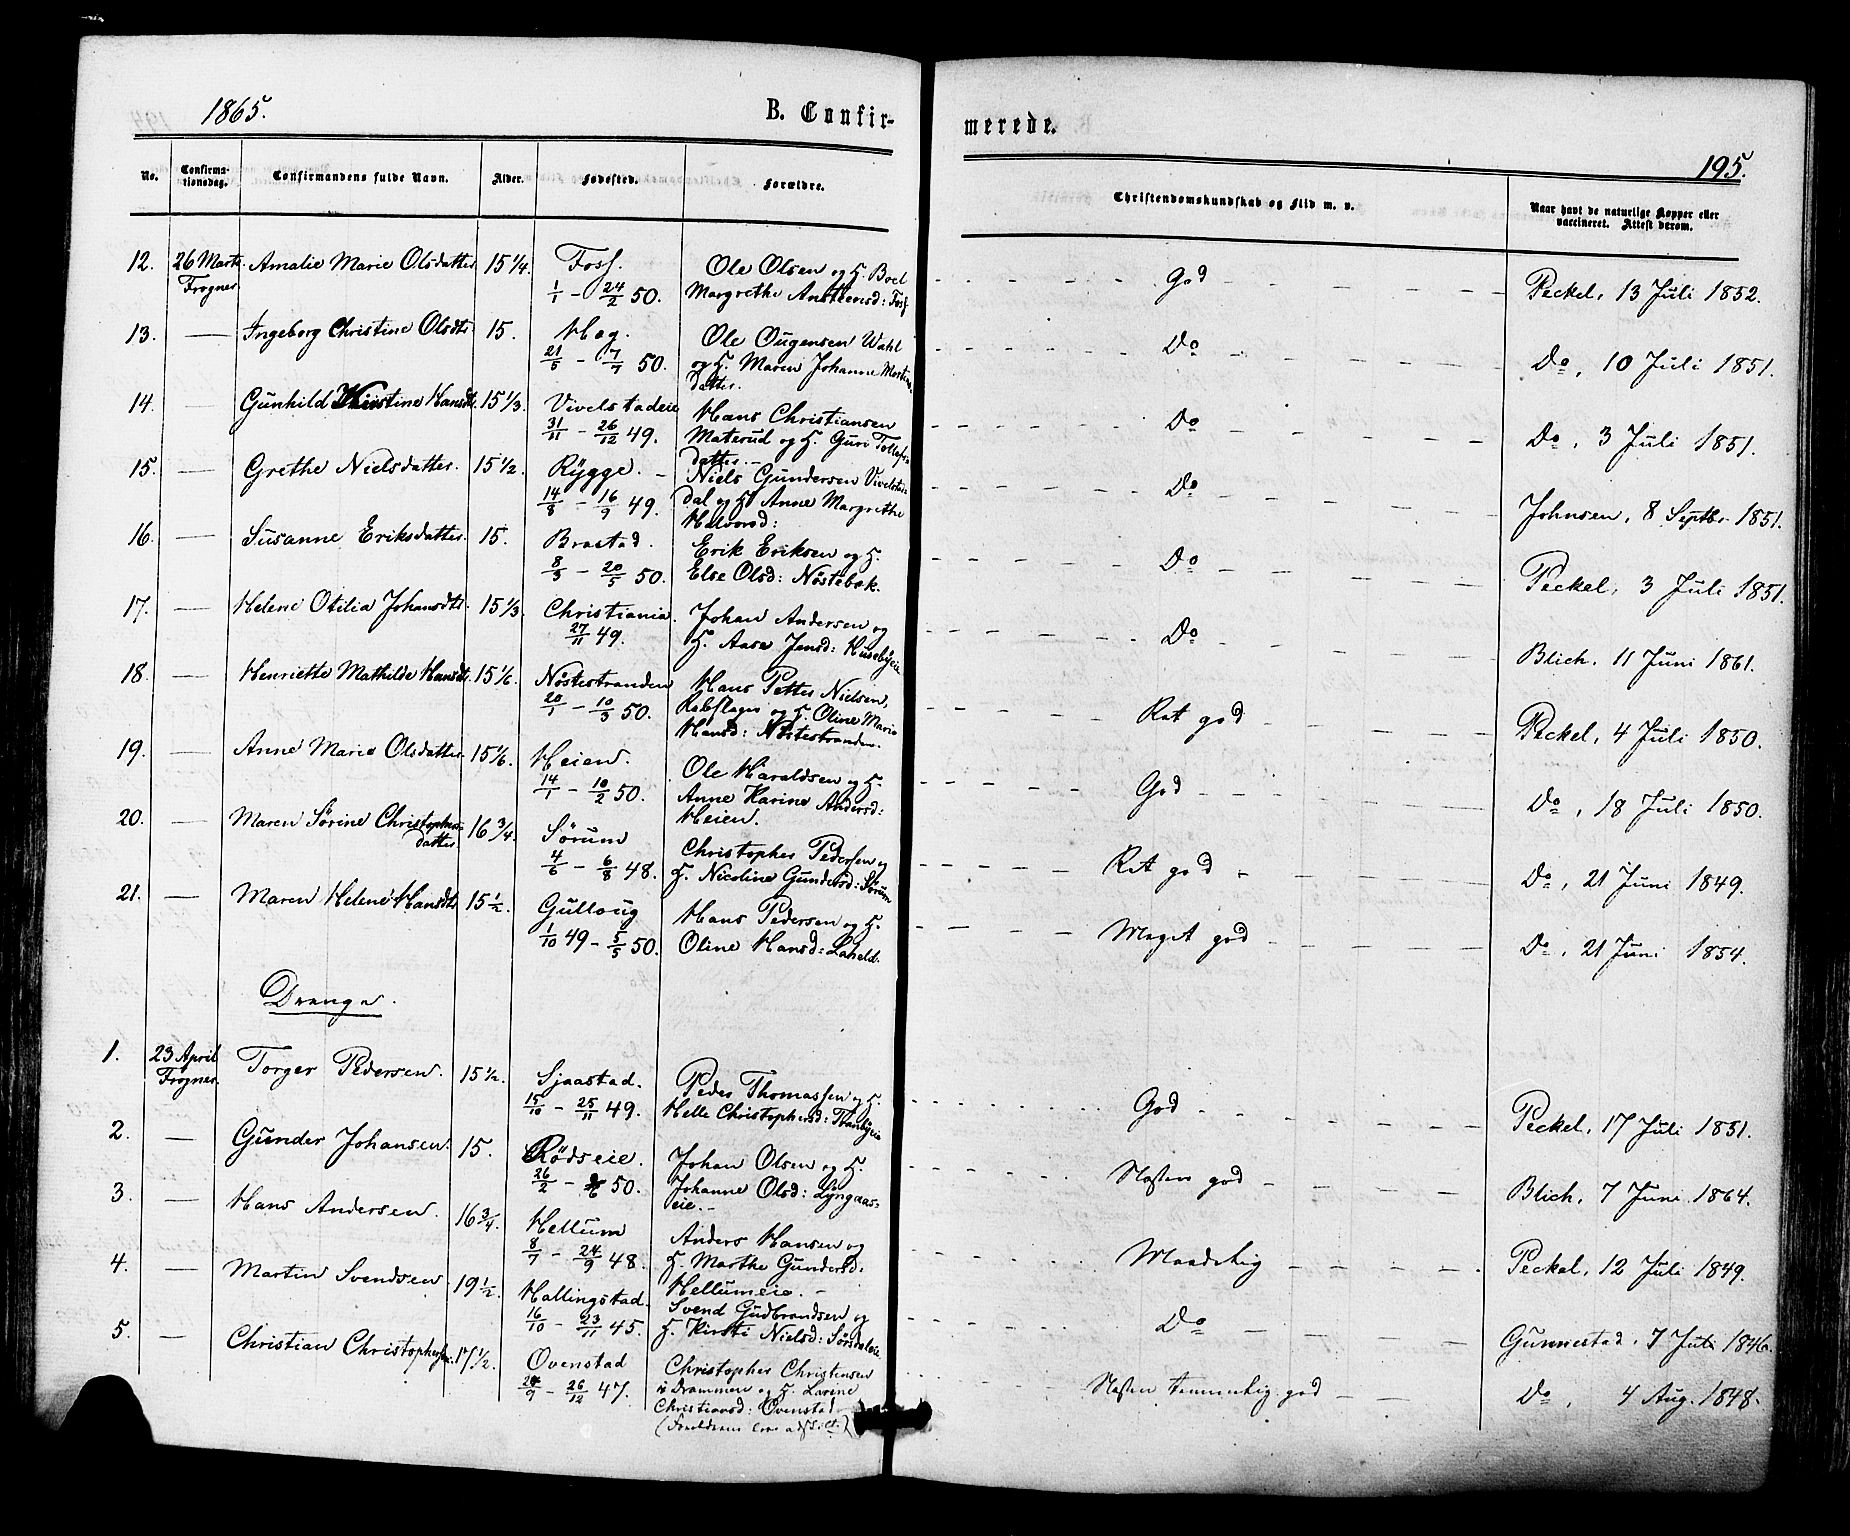 1865.
B. Confirmerede.
195.
No. Confirmationsdag. Confirmandens fulde Navn. Alder. Fødested. Forældre. Christendomskundskab og Flid m. v. Naar havt de naturlige Kopper eller vaccineret. Attest derom.
12. 26 Marts Frogner Amalie Marie Olsdatter 15 1/4. Foss. 1/1 - 24/2 50. Ole Olsen og H. Boel Margrethe Ansteensd: Foss God Peckel, 13 Juli 1852.
13. — Ingeborg Christine Olsdtr 15. Hæg. 21/5 - 7/7 50. Ole Ougensen Wahl og H. Maren Johanne Mortensdatter. Do Do, 10 Juli 1851.
14. — Gunhild Kirstine Hansdtr 15 1/3. Vivelstadeie 31/11 - 26/12 49. Hans Christiansen Materud og H. Guri Tollefsdatter. Do Do, 3 Juli 1851.
15. — Grethe Nielsdatter. 15 1/2. Rygge. 14/8 - 16/9 49. Niels Gundersen Vivelstaddal og H. Anne Margrethe Halvorsd: Do Johnsen, 8 Septbr 1851.
16. — Susanne Eriksdatter. 15. Brastad. 8/3 - 20/5 50. Erik Eriksen og H. Else Olsd: Nøstebæk. Do Peckel, 3 Juli 1851.
17. — Helene Otilia Johansdtr. 15 1/3. Christiania. 27/11 49. Johan Andersen og H. Aase Jensd: Husebyeie Do Blich, 11 Juni 1861.
18. — Henriette Mathilde Hansdtr 15 1/6. Nøstestranden 20/1 - 10/3 50. Hans Petter Nielsen, Rebslager og H. Oline Marie Hansd: Nøstestranden. Ret god Peckel, 4 Juli 1850.
19. — Anne Marie Olsdatter 15 1/6. Heien. 14/1 - 10/2 50. Ole Haraldsen og H. Anne Karine Andersd: Heien. God Do, 18 Juli 1850.
20. — Maren Sørine Christophersdatter. 16 3/4. Sørum 4/6 - 6/8 48. Christopher Pedersen og H. Nicoline Gundersd: Sørum Ret god Do, 21 Juni 1849.
21. — Maren Helene Hansdtr 15 1/2. Gulloug 1/10 49 - 5/5 50. Hans Pedersen og H. Oline Hansd: Laheld. Meget god Do, 21 Juni 1854.
Drenge.
1. 23 April Frogner. Torger Pedersen. 15 1/2. Sjaastad. 15/10 - 25/11 49. Peder Thomassen og H. Helle Christophersd: Tranbyeie God Peckel, 17 Juli 1851.
2. — Gunder Johansen. 15. Rødseie. 26/2 - 50. Johan Olsen og H. Johanne Olsd: Lyngaaseie. Næsten god Blich, 7 Juni 1864.
3. — Hans Andersen. 16 3/4. Hellum 8/7 - 24/9 48. Anders Hansen og H. Marthe Gundersd: Hellumeie. Maadelig Peckel, 12 Juli 1849.
4. — Martin Svendsen 19 1/2. Hallingstad. 16/10 - 23/11 45. Svend Gudbrandsen og H. Kirsti Nielsd: Sørsdaleie Do Gunnestad, 7 Juli 1846.
5. — Christian Christophersen. 17 1/2. Ovenstad 24/9 - 26/12 47. Christopher Christensen i Drammen og H. Lavine Christiansd: Ovenstad (Forældrene leve adskilt) Næsten temmelig god Do, 4 Aug. 1848.